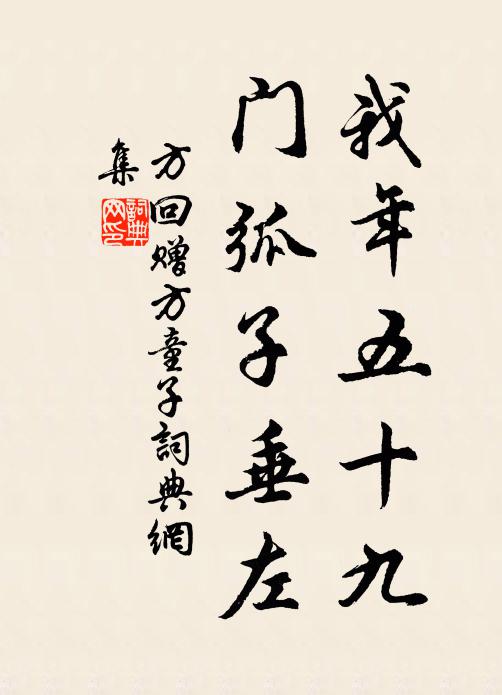 我年五十九
门弧子垂左
方回赠方童子詞典網
集
詞典網印